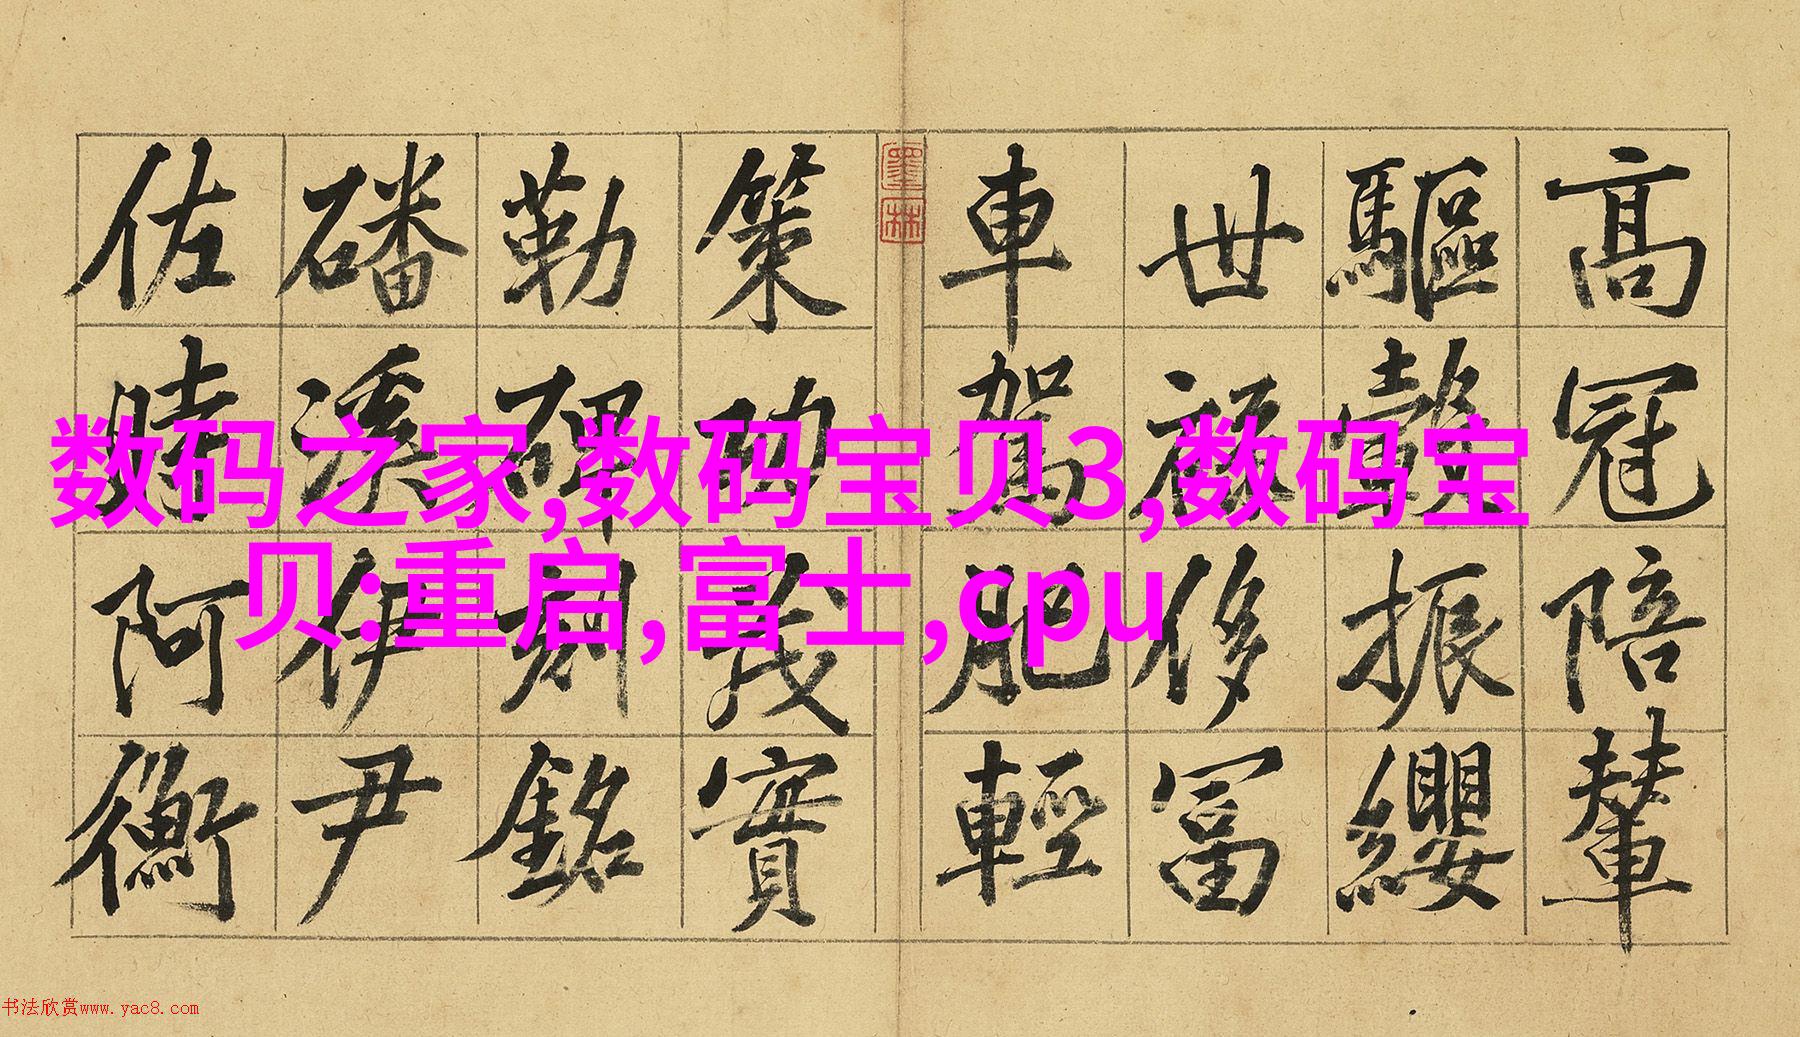 数码之家,数码宝贝3,数码宝
贝:重启,富士,cpu
高冠陪輦
驅轂振纓
世祿侈冨
車駕肥輕
墨林
策功茂實
勒碑刻銘
磻溪伊尹
佐時阿衡
书法欣赏www.yac8.com